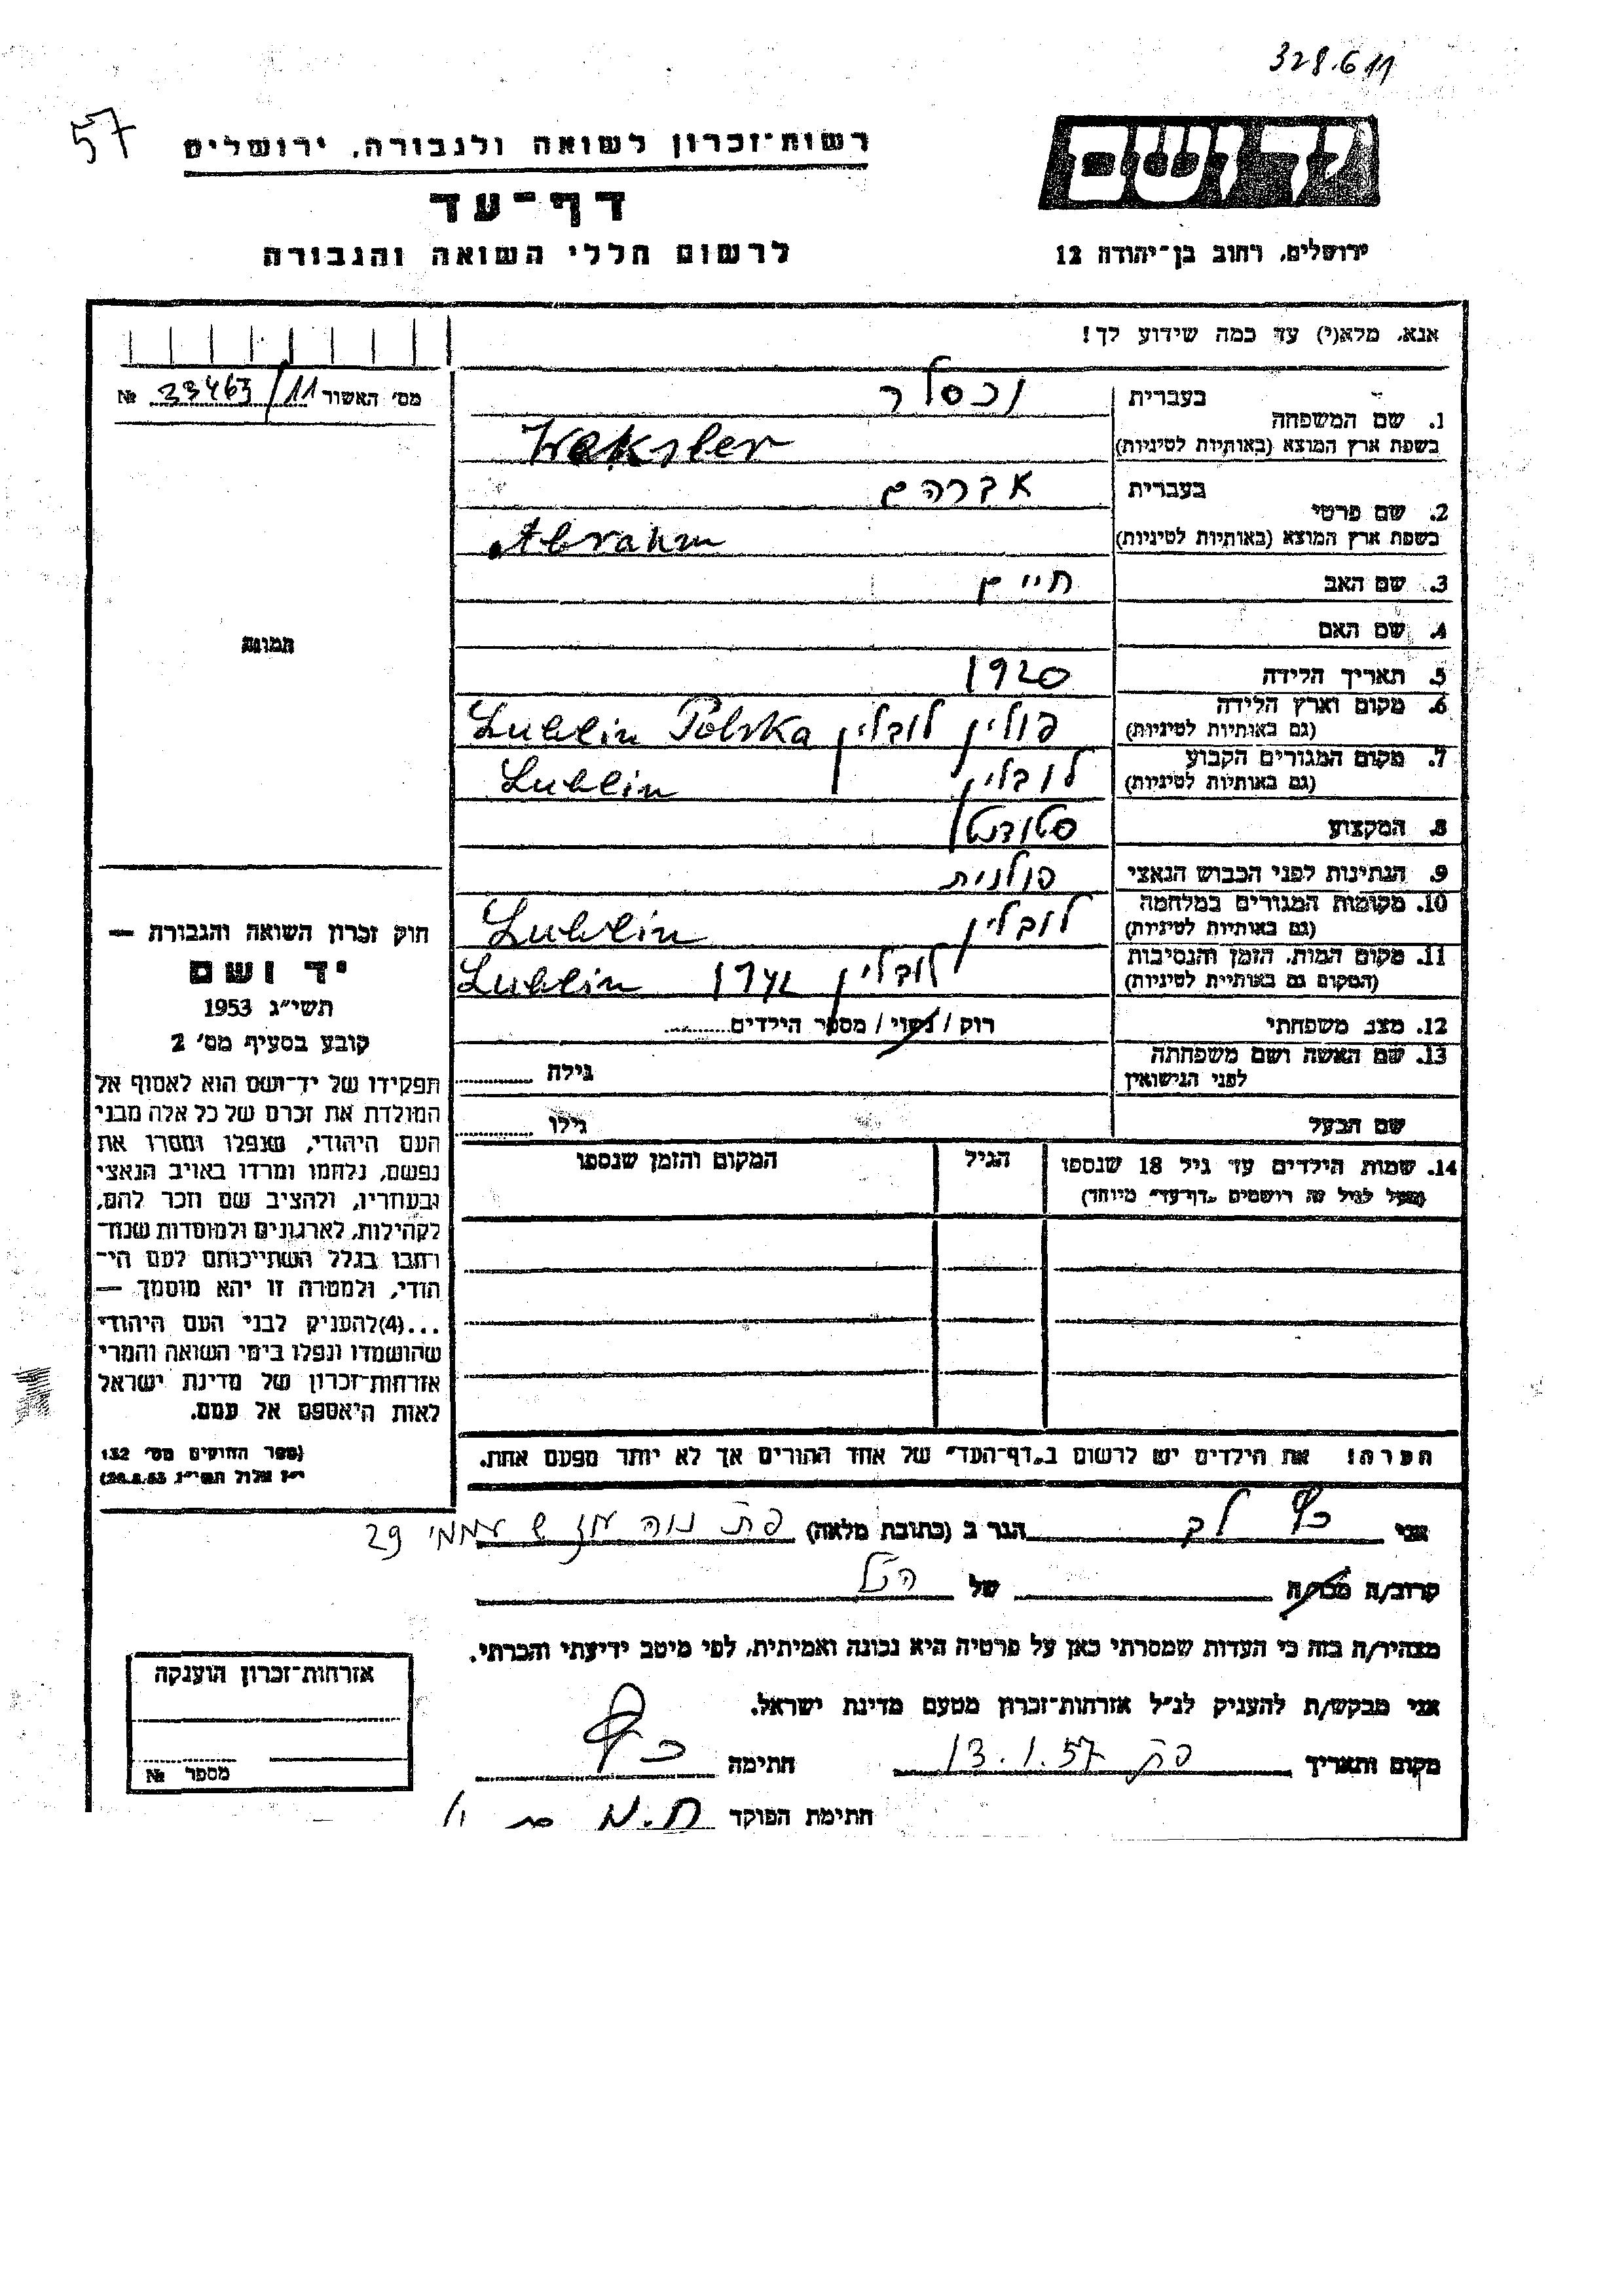 328.611
57
רשות־זכרון לשואה ולגבורה, ירושלים
יד ושם
דף־עד
לרשום חללי השואה והגבורה
ירושלים, רחוב בן־יהודה 12
אנא, מלא(י) עד כמה שידוע לך!
מס' האשור 33463/11 №
1. שם המשפחה
בעברית וכסלר
בשפת ארץ המוצא (באותיות לטיניות) Waksler
2. שם פרטי
בעברית אברהם
בשפת ארץ המוצא (באותיות לטיניות) Abrahm
3. שם האב חיים
4. שם האם
תמונה
5. תאריך הלידה 1920
6. מקום וארץ הלידה פולין לובלין Lublin Polska
(גם באותיות לטיניות)
7. מקום המגורים הקבוע לובלין Lublin
(גם באותיות לטיניות)
8. המקצוע סטודנט
9. הנתינות לפני הכבוש הנאצי פולנית
10. מקומות המגורים במלחמה לובלין Lublin
(גם באותיות לטיניות)
11. מקום המות, הזמן והנסיבות לובלין Lublin
(המקום גם באותיות לטיניות)
12. מצב משפחתי רוק / נשוי / מספר הילדים
13. שם האשה ושם משפחתה גילה
לפני הנישואין
שם הבעל גילו
14. שמות הילדים עד גיל 18 שנספו הגיל המקום והזמן שנספו
(מעל לגיל זה רושמים "דף־עד" מיוחד)
הערה! את הילדים יש לרשום ב"דף־העד" של אחד ההורים אך לא יותר מפעם אחת.
חוק זכרון השואה והגבורה —
יד ושם
תשי"ג 1953
קובע בסעיף מס' 2
תפקידו של יד־ושם הוא לאסוף אל
המולדת את זכרם של כל אלה מבני
העם היהודי, שנפלו ומסרו את
נפשם, נלחמו ומרדו באויב הנאצי
ובעוזריו, ולהציב שם וזכר להם,
לקהילות, לארגונים ולמוסדות שנח־
רבו בגלל השתייכותם לעם הי־
הודי, ולמטרה זו יהא מוסמך —
...(4) להעניק לבני העם היהודי
שהושמדו ונפלו בימי השואה והמרי
אזרחות־זכרון של מדינת ישראל
לאות היאספם אל עמם.
(ספר החוקים מס' 132
י"ז אלול תשי"ג, 28.8.53)
אני כץ לב הגר ב (כתובת מלאה) פת נוה עוז ש עממי 29
קרוב/ה מכר/ה של הנ"ל
מצהיר/ה בזה כי העדות שמסרתי כאן על פרטיה היא נכונה ואמיתית, לפי מיטב ידיעתי והכרתי.
אני מבקש/ת להעניק לנ"ל אזרחות־זכרון מטעם מדינת ישראל.
מקום ותאריך פת 13.1.57 חתימה
חתימת הפוקד
אזרחות־זכרון הוענקה
מספר №